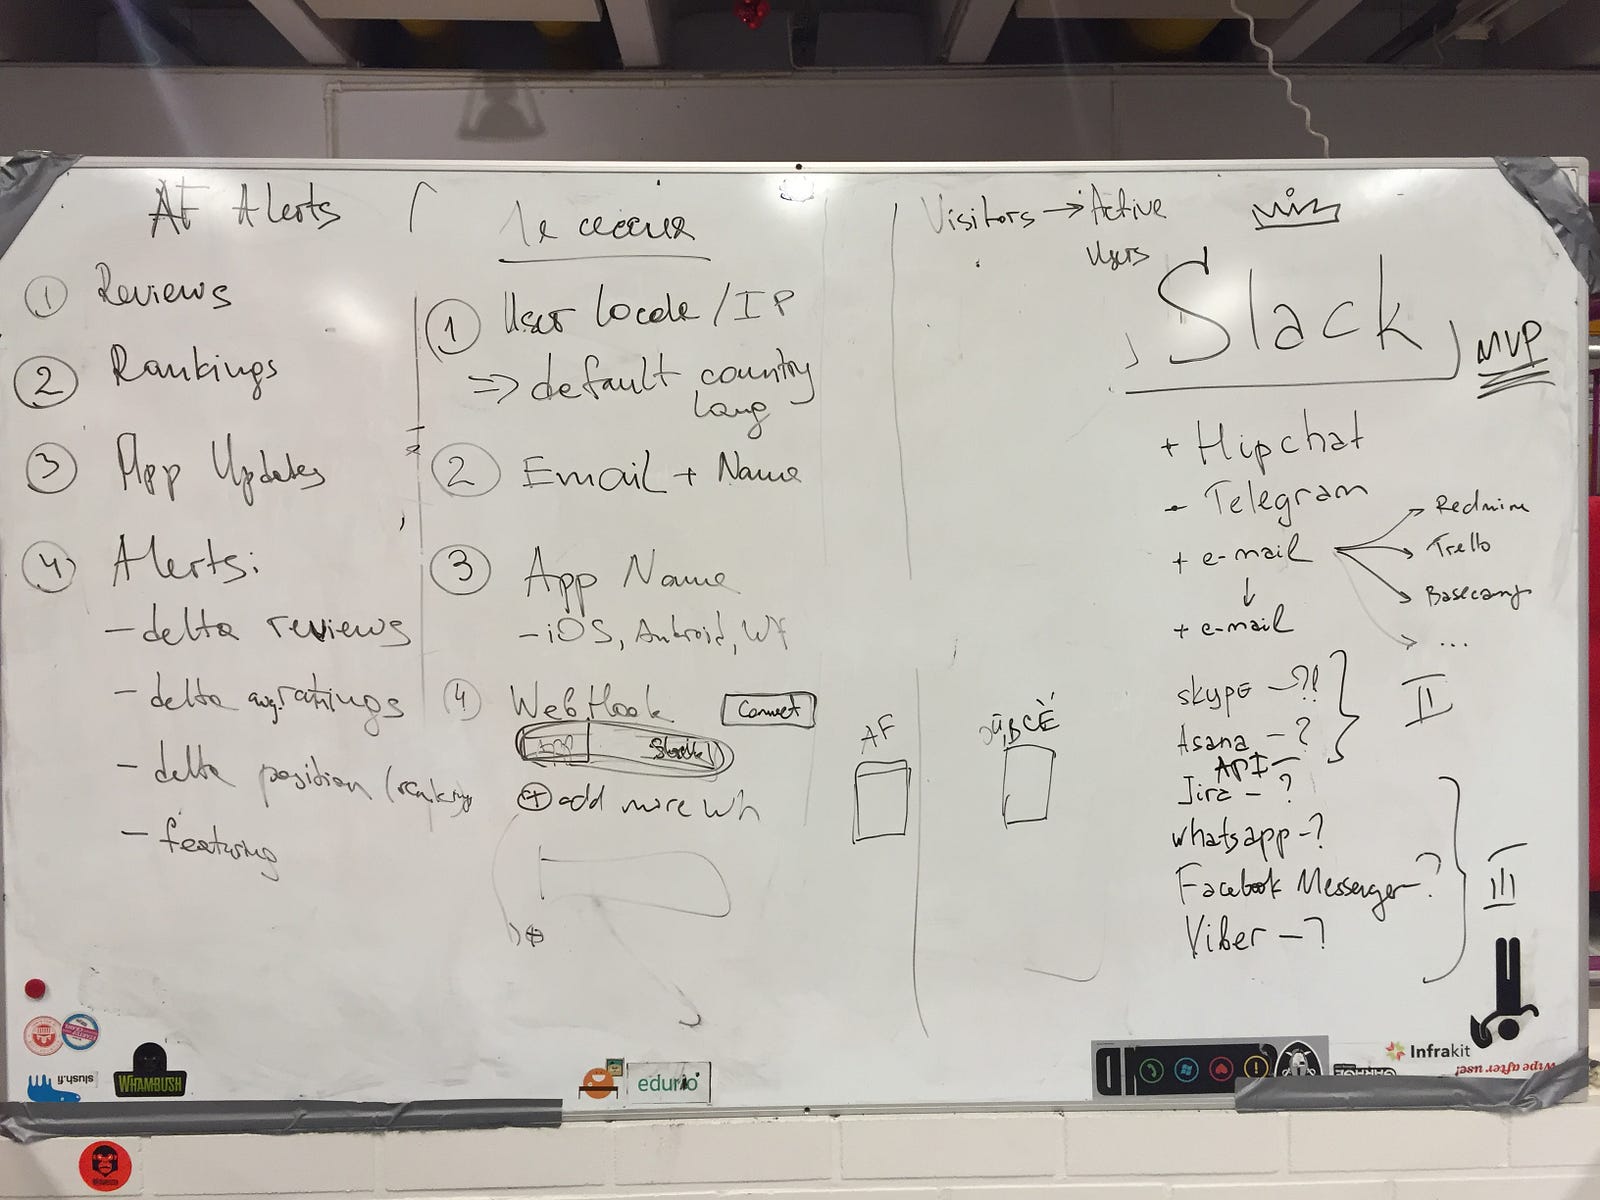 AF Alerts
① Reviews
② Rankings
③ App Updates
④ Alerts:
- delta reviews
- delta avg. ratings
- delta position (ranking
- featuring
1я сессия
① User locale / IP
=> default country
lang
② Email + Name
③ App Name
- iOS, Android, WP
④ WebHook
Connect
⊕ add more wh
AF
Visitors → Active
Users
Slack
MVP
+ Hipchat
- Telegram
+ e-mail
Redmine
Trello
Basecamp
...
↓
+ e-mail
skype - ?!
Asana - ?
API -
Jira - ?
II
whatsapp - ?
Facebook Messenger - ?
Viber - ?
III
slush.fi
WHAMBUSH
edurio
Infrakit
GARAGE
Wipe after use!